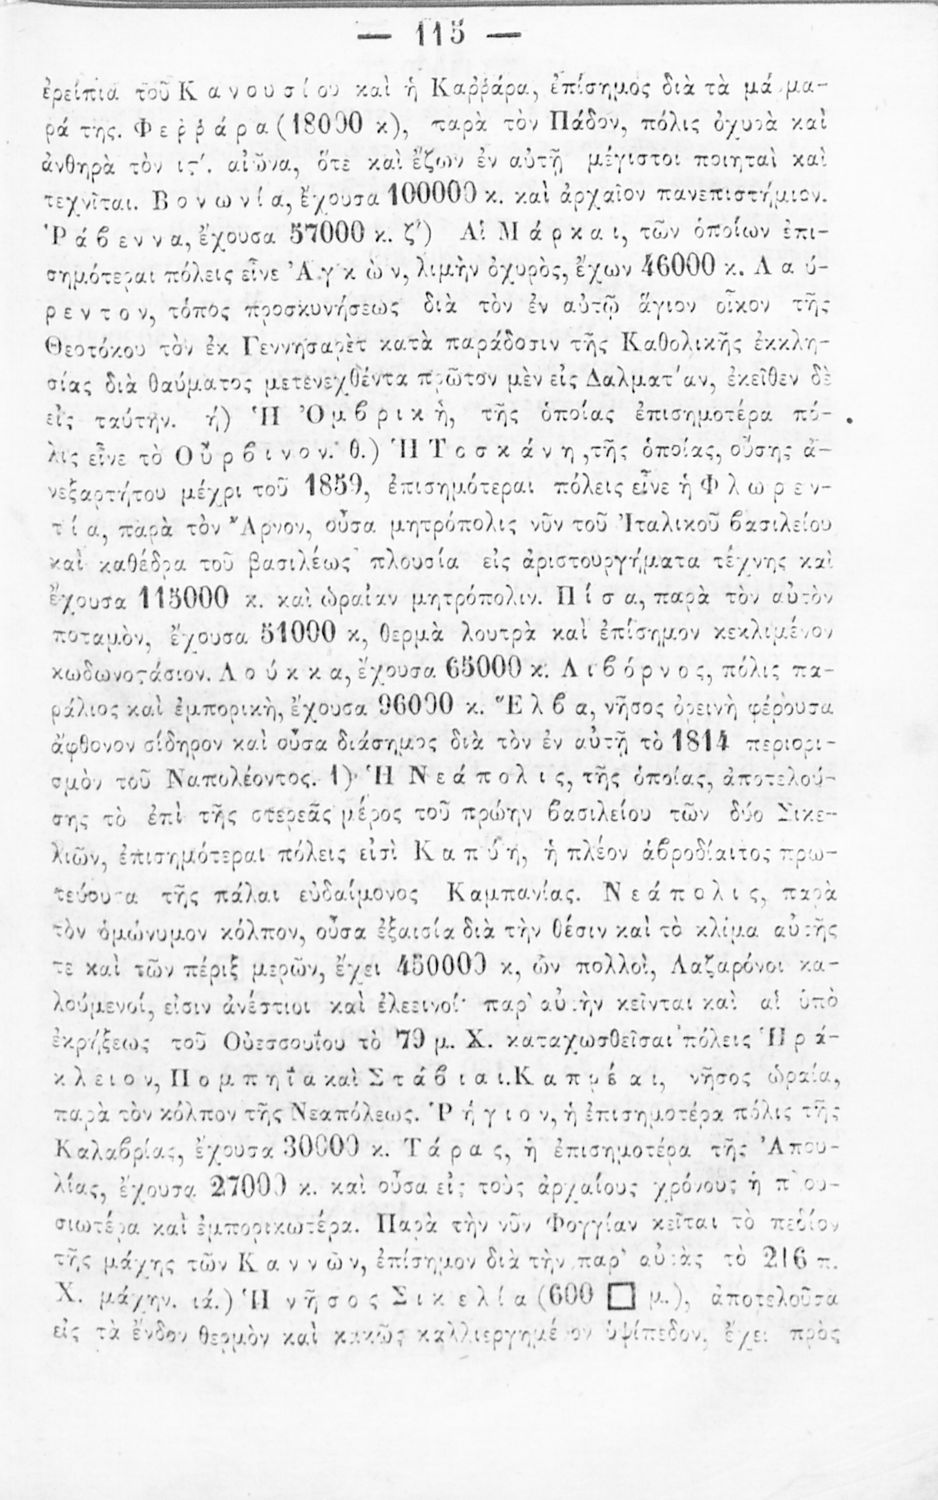 — 115 —
ἐρείπια τοῦ Κανουσίου καὶ ἡ Καῤῥάρα, ἐπίσημος διὰ τὰ μάρμα-
ρά της. Φεῤῥάρα (18000 κ), παρὰ τὸν Πάδον, πόλις ὀχυρὰ καὶ
ἀνθηρὰ τὸν ις΄. αἰῶνα, ὅτε καὶ ἔζων ἐν αὐτῇ μέγιστοι ποιηταὶ καὶ
τεχνῖται. Βονωνία, ἔχουσα 100000 κ. καὶ ἀρχαῖον πανεπιστήμιον.
Ῥάβεννα, ἔχουσα 57000 κ. ζ΄) Αἱ Μάρκαι, τῶν ὁποίων ἐπι-
σημότεραι πόλεις εἶνε Ἀγκὼν, λιμὴν ὀχυρὸς, ἔχων 46000 κ. Λαύ-
ρεντον, τόπος προσκυνήσεως διὰ τὸν ἐν αὐτῷ ἅγιον οἶκον τῆς
Θεοτόκου τὸν ἐκ Γεννησαρὲτ κατὰ παράδοσιν τῆς Καθολικῆς ἐκκλη-
σίας διὰ θαύματος μετενεχθέντα πρῶτον μὲν εἰς Δαλματίαν, ἐκεῖθεν δὲ
εἰς ταύτην. ή) Ἡ Ὀμβρικὴ, τῆς ὁποίας ἐπισημοτέρα πό-
λις εἶνε τὸ Οὖρβινον. θ.) Ἡ Τοσκάνη, τῆς ὁποίας, οὔσης ἀ-
νεξαρτήτου μέχρι τοῦ 1859, ἐπισημότεραι πόλεις εἶνε ἡ Φλωρεν-
τία, παρὰ τὸν Ἄρνον, οὖσα μητρόπολις νῦν τοῦ Ἰταλικοῦ βασιλείου
καὶ καθέδρα τοῦ βασιλέως· πλουσία εἰς ἀριστουργήματα τέχνης καὶ
ἔχουσα 115000 κ. καὶ ὡραίαν μητρόπολιν. Πίσα, παρὰ τὸν αὐτὸν
ποταμὸν, ἔχουσα 51000 κ, θερμὰ λουτρὰ καὶ ἐπίσημον κεκλιμένον
κωδωνοτάσιον. Λούκκα, ἔχουσα 65000 κ. Λιβόρνος, πόλις πα-
ράλιος καὶ ἐμπορικὴ, ἔχουσα 96000 κ. Ἔλβα, νῆσος ὀρεινὴ φέρουσα
ἄφθονον σίδηρον καὶ οὖσα διάσημος διὰ τὸν ἐν αὐτῇ τὸ 1814 περιορι-
σμὸν τοῦ Ναπολέοντος. 1) Ἡ Νεάπολις, τῆς ὁποίας, ἀποτελού-
σης τὸ ἐπὶ τῆς στερεᾶς μέρος τοῦ πρώην βασιλείου τῶν δύο Σικε-
λιῶν, ἐπισημότεραι πόλεις εἰσὶ Καπύη, ἡ πλέον ἁβροδίαιτος πρω-
τεύουσα τῆς πάλαι εὐδαίμονος Καμπανίας. Νεάπολις, παρὰ
τὸν ὁμώνυμον κόλπον, οὖσα ἐξαισία διὰ τὴν θέσιν καὶ τὸ κλίμα αὐτῆς
τε καὶ τῶν πέριξ μερῶν, ἔχει 450000 κ, ὧν πολλοὶ, Λαζαρόνοι κα-
λούμενοί, εἰσιν ἀνέστιοι καὶ ἐλεεινοί· παρ' αὐτὴν κεῖνται καὶ αἱ ὑπὸ
ἐκρήξεως τοῦ Οὐεσσουΐου τὸ 79 μ. Χ. καταχωσθεῖσαι πόλεις Ἡρά-
κλειον, Πομπηΐα καὶ Στάβιαι. Καπρέαι, νῆσος ὡραία,
παρὰ τὸν κόλπον τῆς Νεαπόλεως. Ῥήγιον, ἡ ἐπισημοτέρα πόλις τῆς
Καλαβρίας, ἔχουσα 30000 κ. Τάρας, ἡ ἐπισημοτέρα τῆς Ἀπου-
λίας, ἔχουσα 27000 κ. καὶ οὖσα εἰς τοὺς ἀρχαίους χρόνους ἡ πλου-
σιωτέρα καὶ ἐμπορικωτέρα. Παρὰ τὴν νῦν Φογγίαν κεῖται τὸ πεδίον
τῆς μάχης τῶν Καννῶν, ἐπίσημον διὰ τὴν παρ' αὐτὰς τὸ 216 π.
Χ. μάχην. ιά.) Ἡ νῆσος Σικελία (600 □ μ.), ἀποτελοῦσα
εἰς τὰ ἔνδον θερμὸν καὶ κακῶς καλλιεργημένον ὑψίπεδον, ἔχει πρὸς